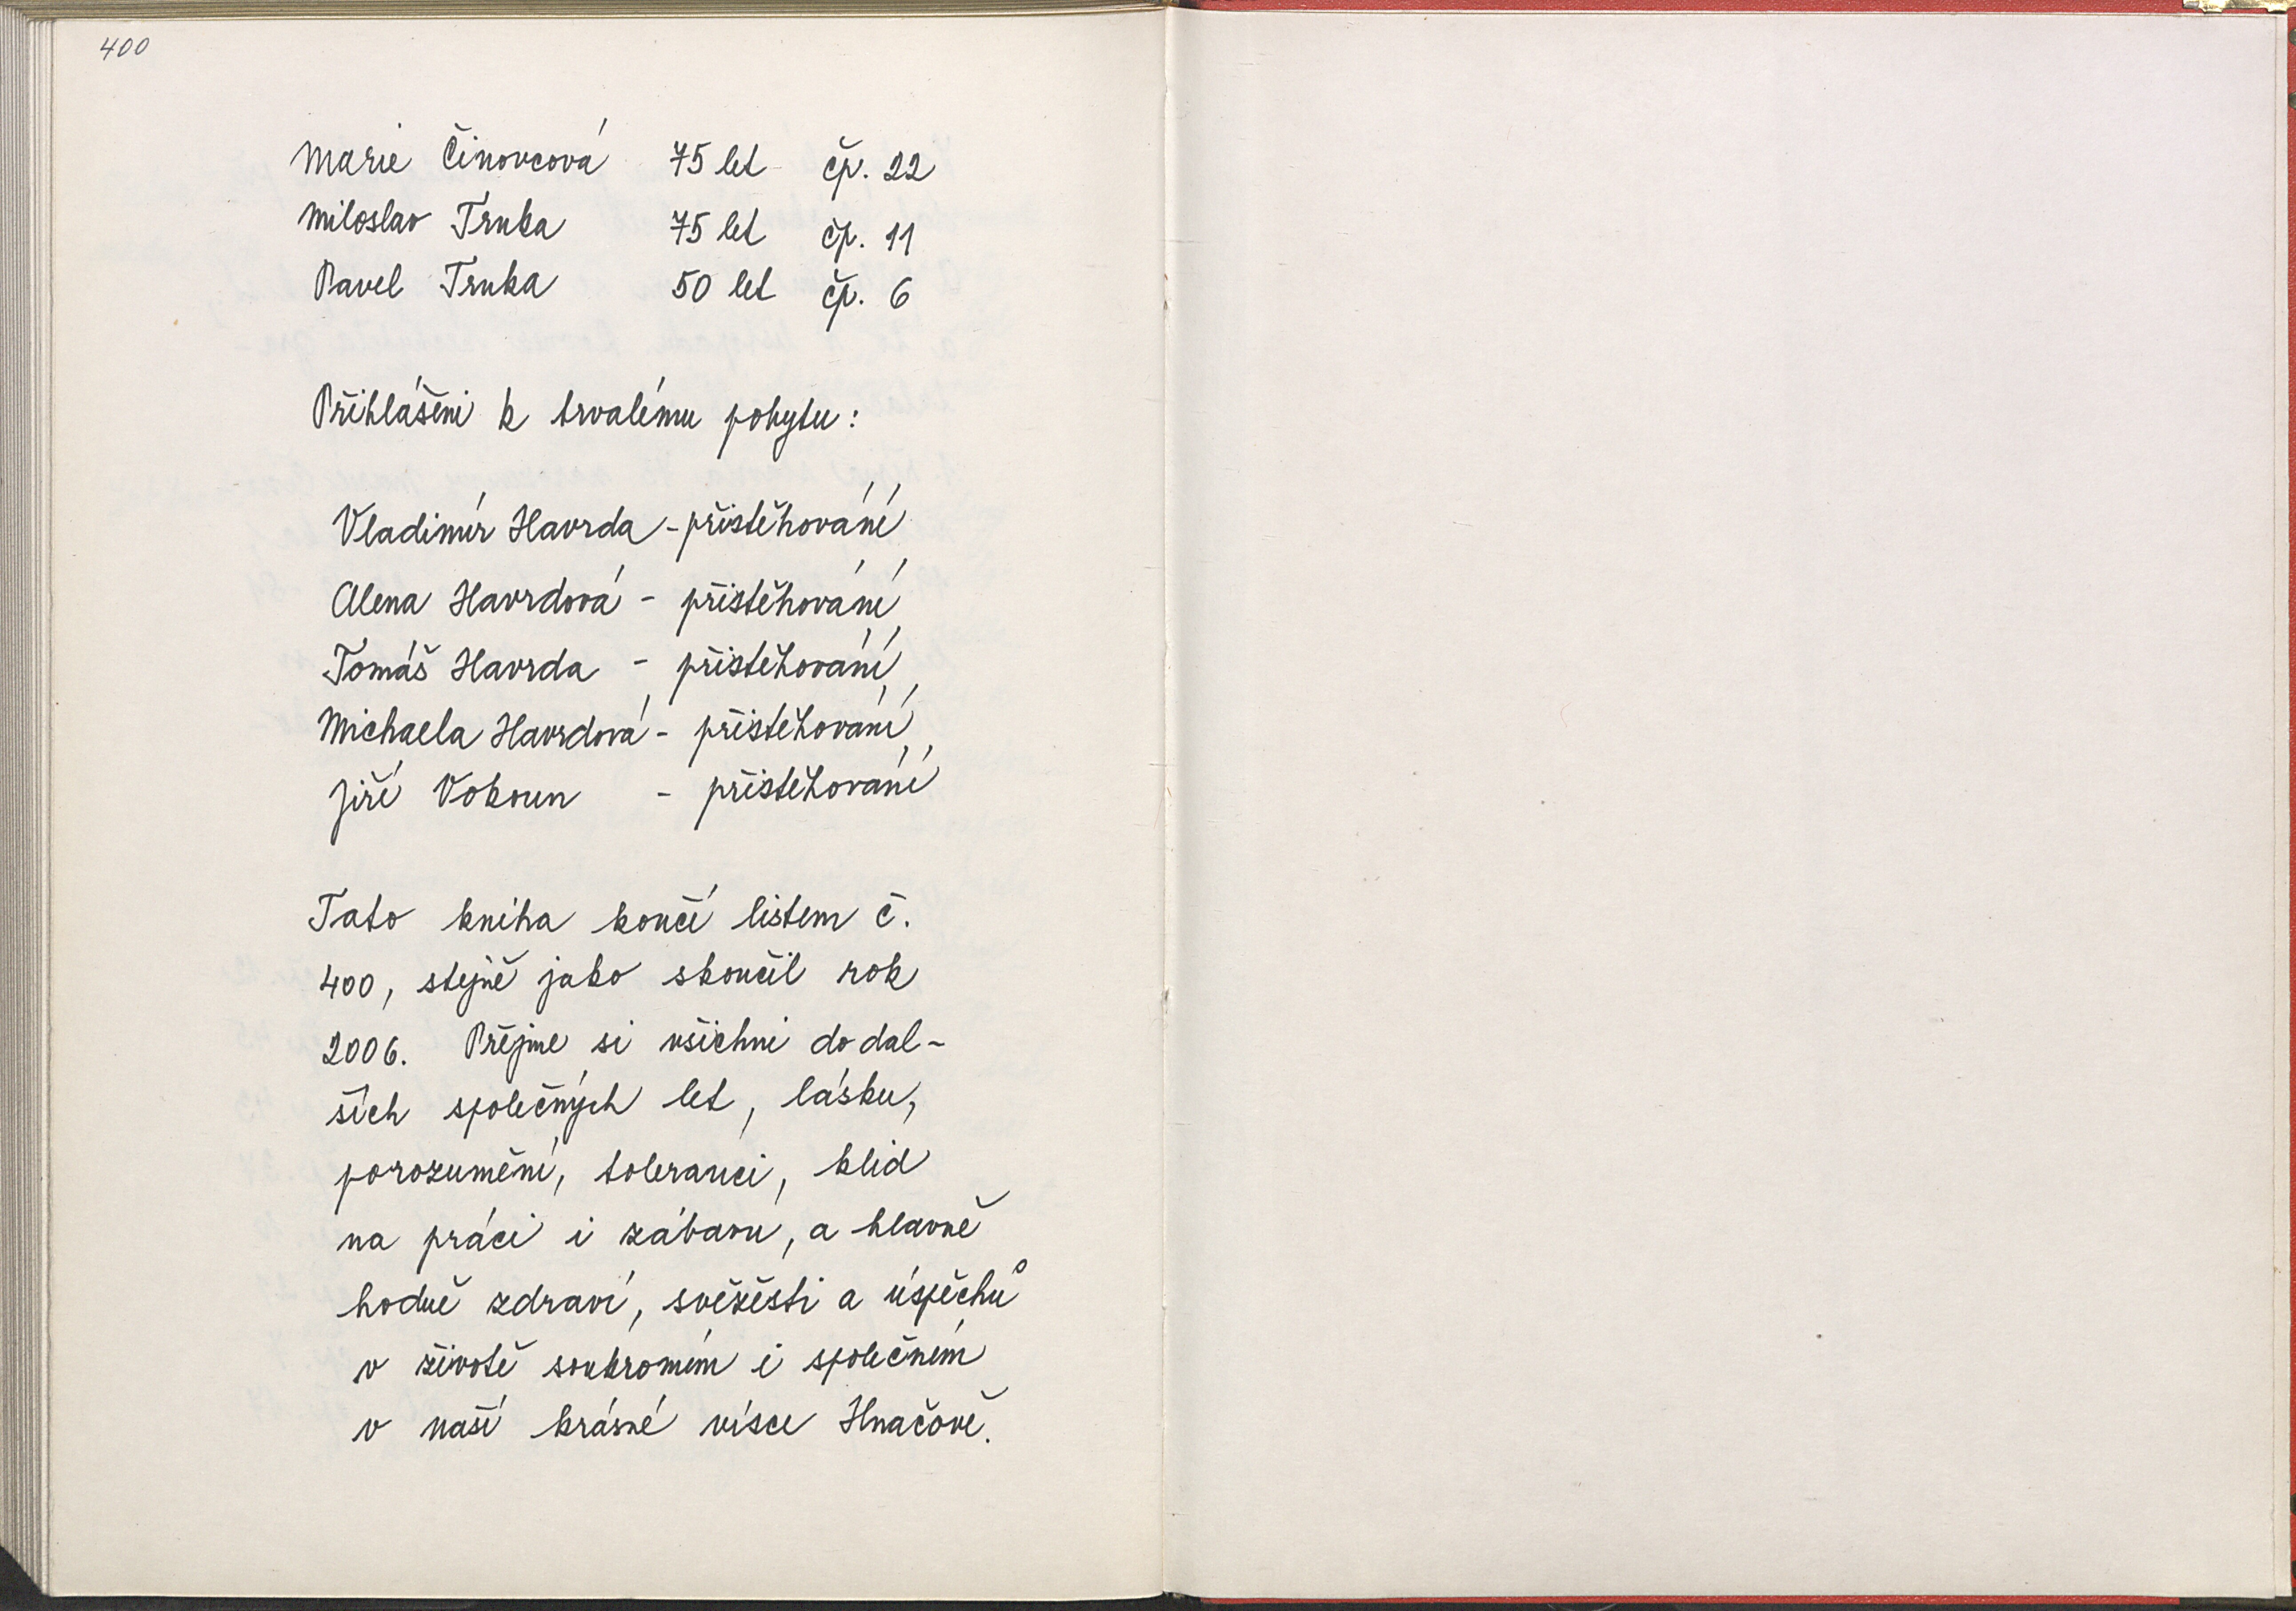 400
Marie Činovcová 75 let čp. 22
Miloslav Trnka 75 let čp. 11
Pavel Trnka 50 let čp. 6
Přihlášeni k trvalému pobytu:
Vladimír Havrda - přistěhování
Alena Havrdová - přistěhování
Tomáš Havrda - přistěhování
Michaela Havrdová - přistěhování
Jiří Vokoun - přistěhování
Tato kniha končí listem č.
400, stejně jako skončil rok
2006. Přejme si všichni do dal-
ších společných let, lásku,
porozumění, toleranci, klid
na práci i zábavu, a hlavně
hodně zdraví, svěžesti a úspěchů
v životě soukromém i společném
v naší krásné vísce Hnačově.